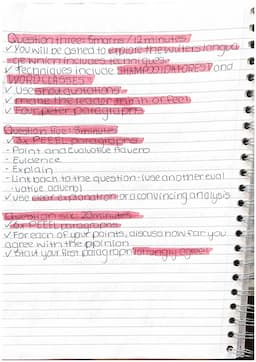 Question three: 6marks / 12 minutes
✓ You will be asked to explore the writers langua
ge which includes techniques.
✓ Techniques include and
WORD CLASSES
✓ Use short quotations
✓ make the reader think or feel
✓ Four peter paragraphs
Question five: minutes
✓ 3x PEEEL paragraphs
- Point and Evaluative Adverb
- Evidence
- Explain
- Link back to the question - (use another eval
uative adverb)
✓ use clear explanation or a convincing analysis
Question six: 20 minutes
✓ PEEEL paragraphs
✓ For each of your points, discuss how far you
agree with the opinion
✓ Start your first paragraph strongly agree